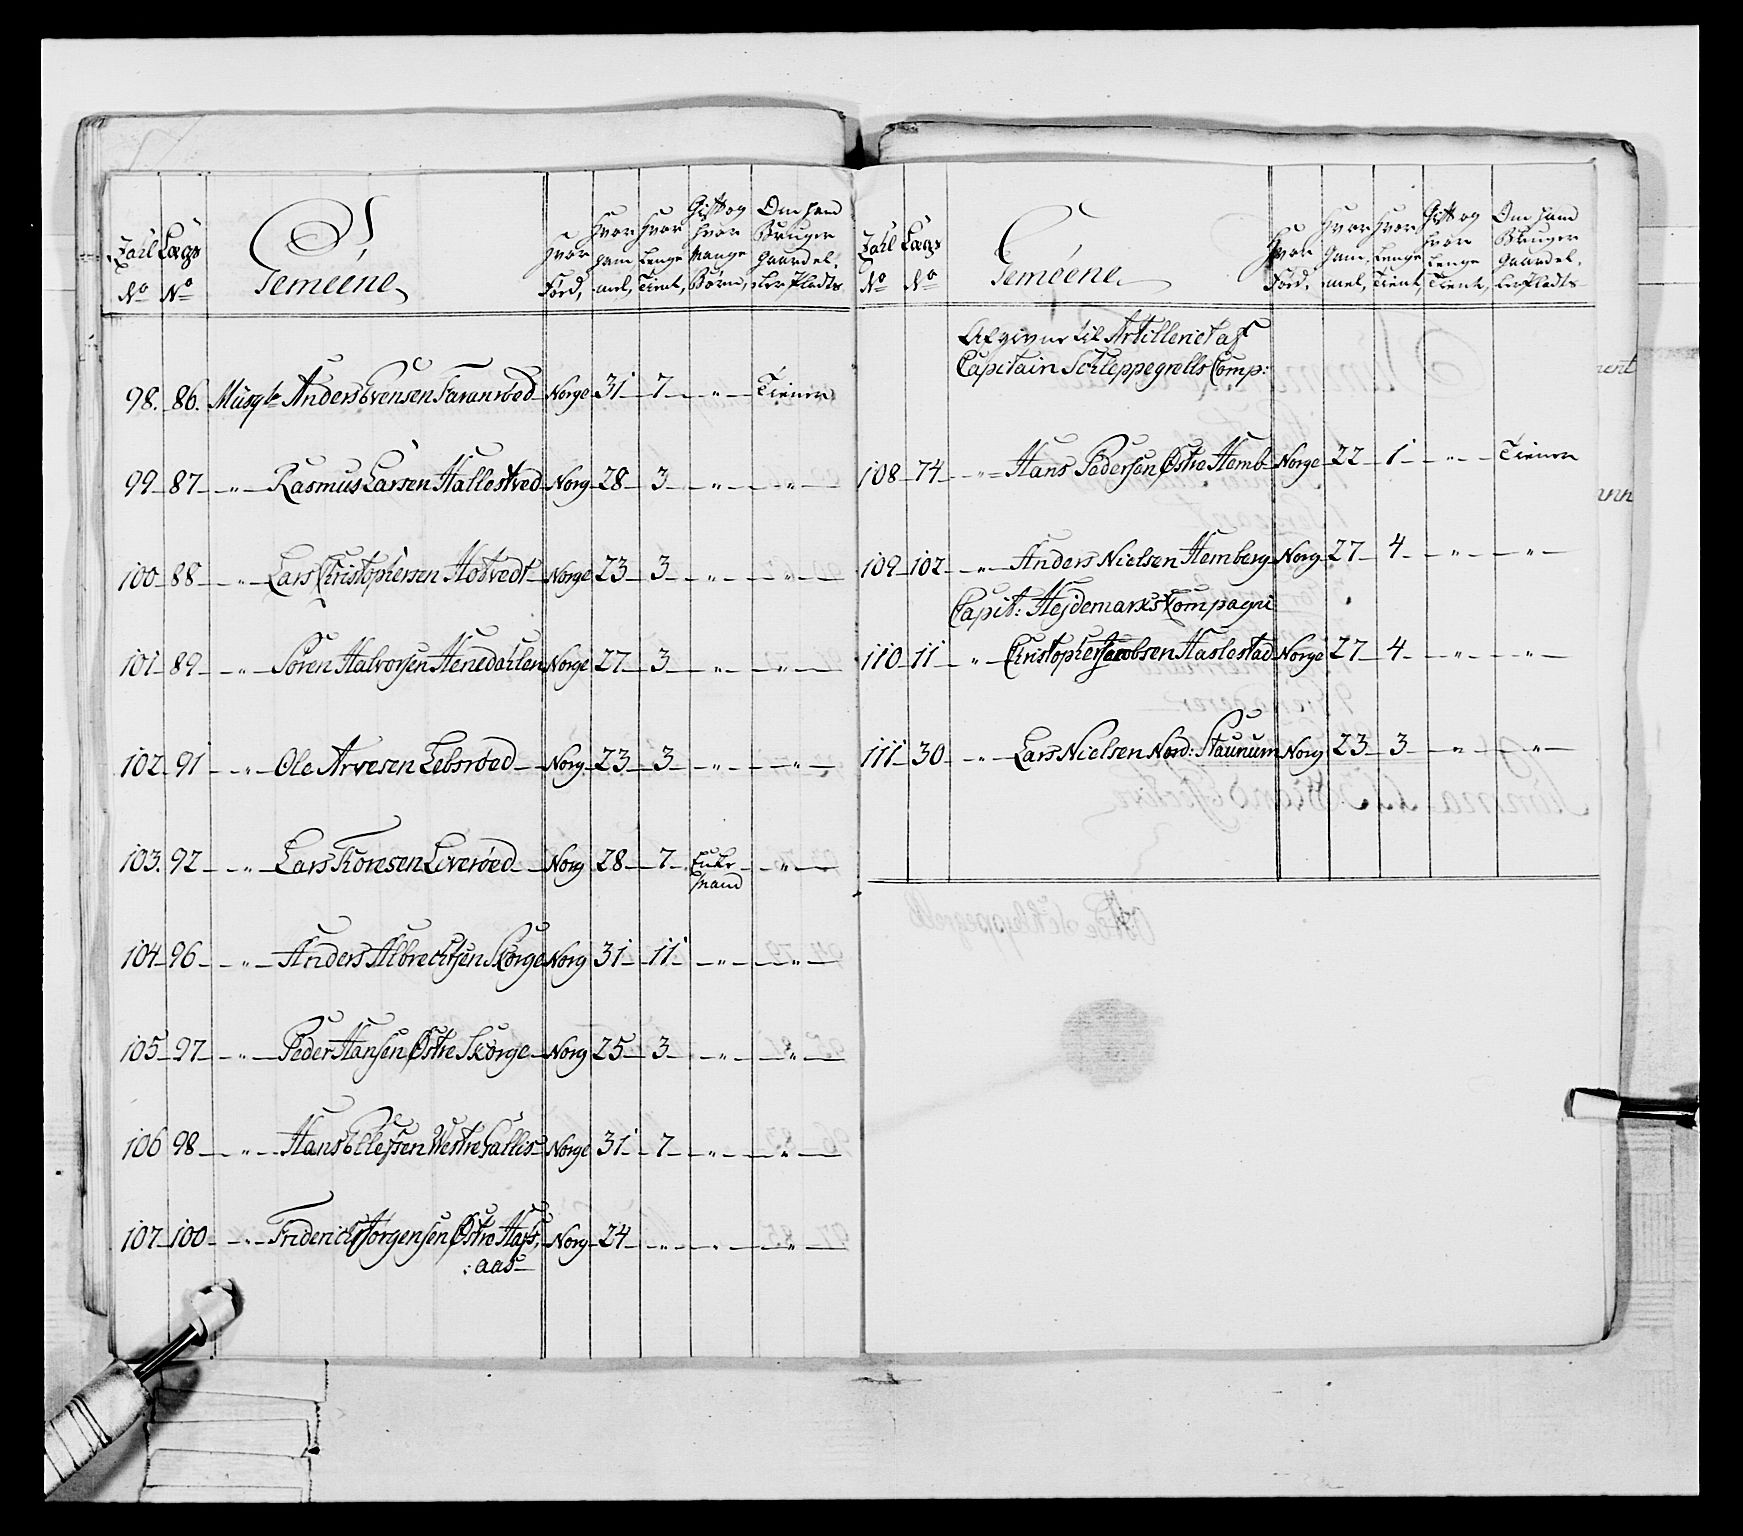 Zahl No | Lægs No | Gemeene | Hvor Fød, | Hvor gammel, | Hvor Lenge Tient, | Gift og hvor Mange Børn, | Om hand Bruger Gaard eller Pladts
98. 86. Musqtr Anders Evensen Faranrøed Norge 31 7 " Tiener
99 87 " Rasmus Larsen Hallestved Norg 28 3 " "
100 88 " Lars Christophersen Hotvedt Norge 23 3 " "
101 89 " Søren Halvorsen Henedahlen Norge 27 3 " "
102 91 " Ole Arvesen Lebsrøed Norg 23 3 " "
103. 92 " Lars Thoresen Liverøed Norg 28 7 Enke "
Mand
104 96 " Anders Albrechtsen Skorge Norg 31 11 " "
105 97 " Peder Hansen Østre Skorge Norg 25 3 " "
106 98 " Hans Ellefsen Westre Hallis Norge 31 7 " "
107 100 " Friderich Jørgensen Østre Hass, Norg 24 " " "
:aas
Zahl No | Lægs No | Gemeene | Hvor Fød, | Hvor Gammel, | Hvor Lenge Tient, | Gift og hvor Lenge Tient, | Om hand Bruger Gaard eller Pladts
Afgivne til Artilleriet af
Capitain Schleppegrells Comp:
108 74 " Hans Pedersen Østre Hemb Norge 22 1 " Tiener
109 102 " Anders Nielsen Hemberg Norg 27 4 " "
Capit: Hejdemarks Compagni
110 11 " Christopher Jacobsen Haslestad Norge 27 4 " "
111 30 " Lars Nielsen Nord: Staunum Norg 23 3 " "